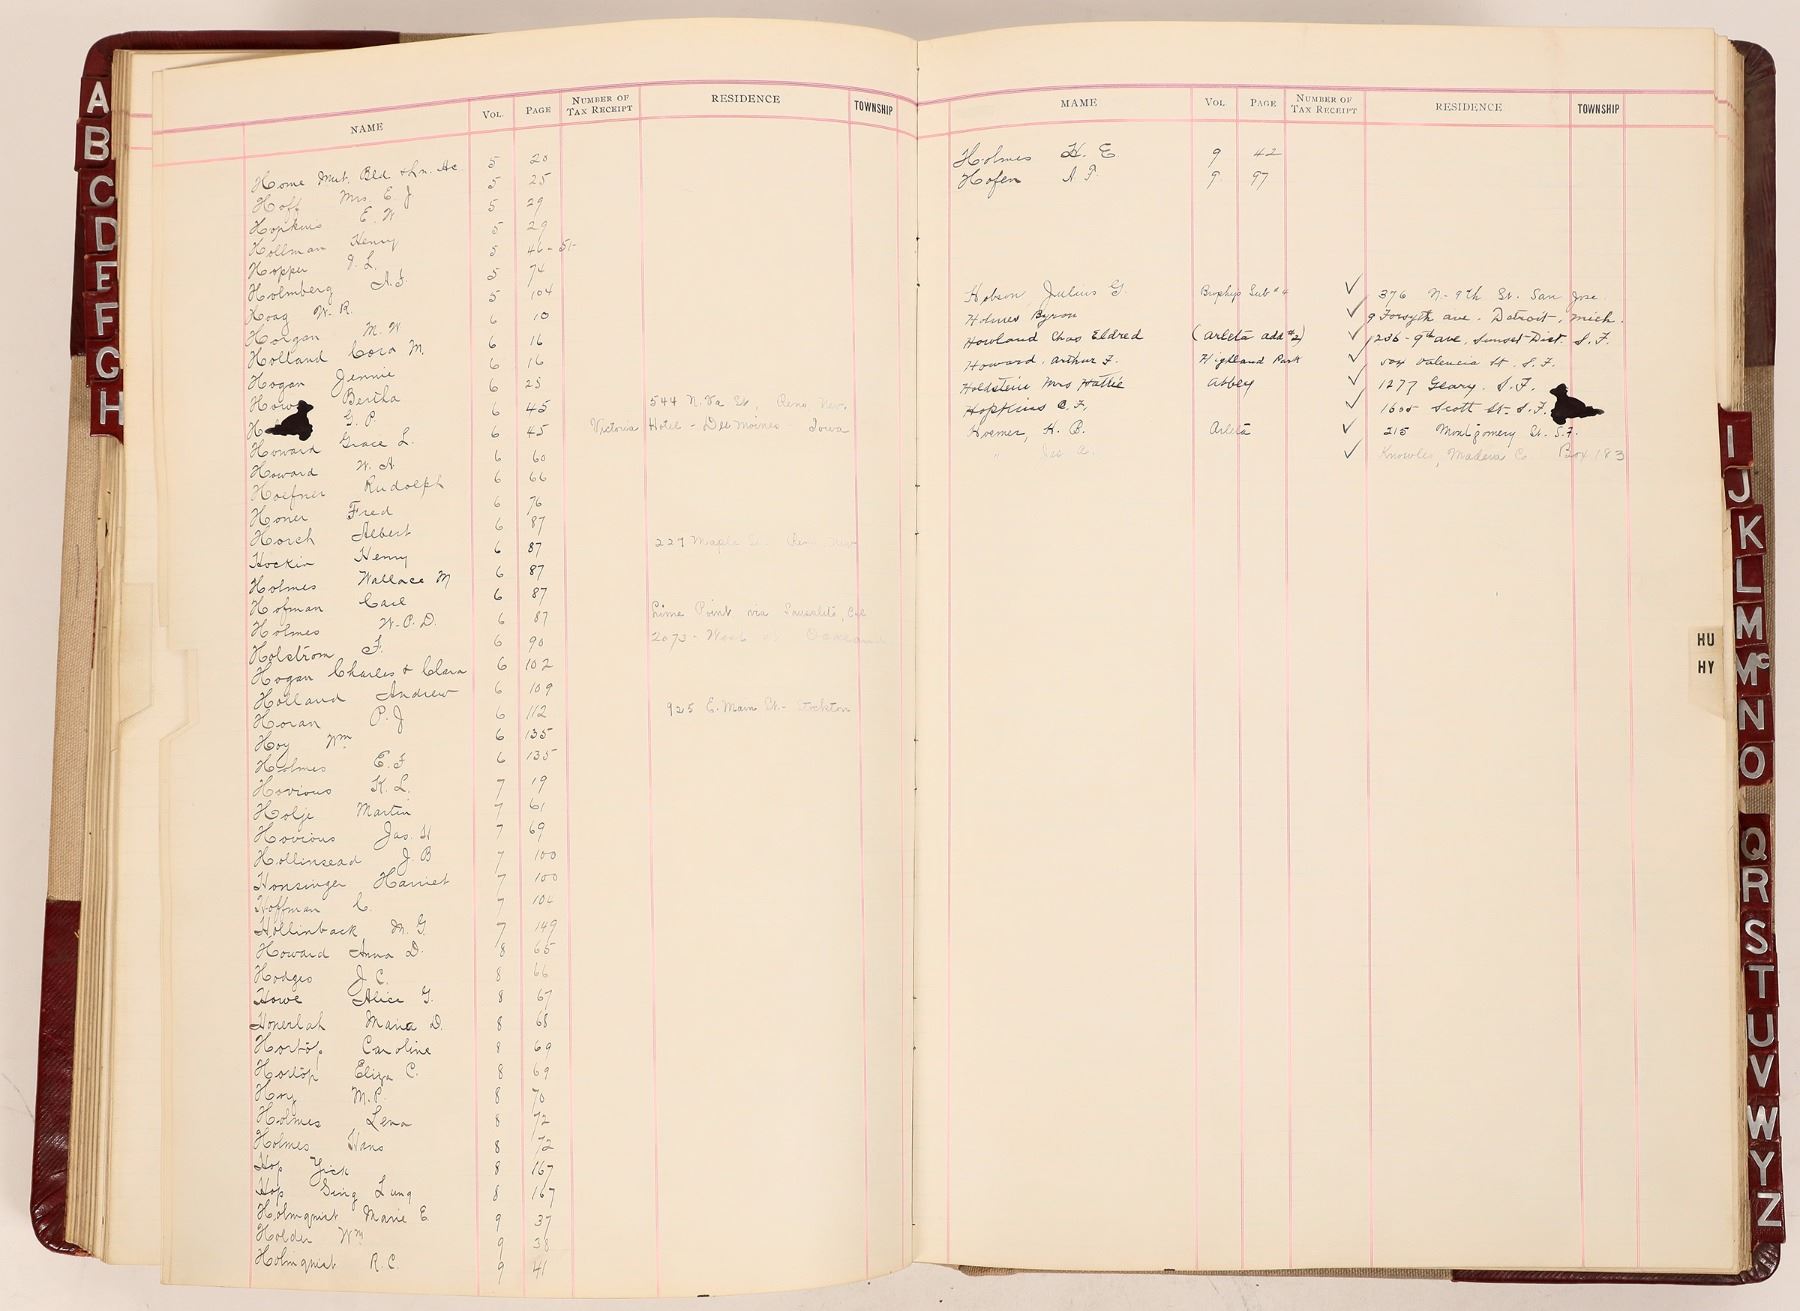 A
B
C
D
E
F
G
H
NAME VOL. PAGE NUMBER OF TAX RECEIPT RESIDENCE TOWNSHIP
Home Mut. Bld & Ln. As. 5 20
Hoff Mrs. E. J 5 25
Hopkins E. W 5 29
Hollman Henry 5 29
Hopper I. L. 5 46-51-
Holmberg A. F. 5 74
Hoag W. R. 5 104
Horgan M. W 6 10
Holland Cora M. 6 16
Hogan Jennie 6 16
Bertha 6 25
G. P. 6 45 544 N. Va St, Reno Nev.
Howard Grace L. 6 45 Victoria Hotel - Des Moines - Iowa
Howard W. A 6 60
Hoefner Rudolph 6 66
Honer Fred 6 76
Horch Albert 6 87
Hockin Henry 6 87 227 Maple St. Reno Nev
Holmes Wallace M 6 87
Hofman Carl 6 87
Holmes W. P. D. 6 87 Lime Point via Sausalito, Cal
Holstrom F. 6 90 2073 - West St Oakland
Hogan Charles & Clara 6 102
Holland Andrew 6 109
Horan P. J 6 112 925 E. Main St - Stockton
Hoy Wm 6 135
Holmes E. F. 6 135
Hovious K. L. 7 19
Holje Martin 7 61
Hovious Jas. H 7 69
Hollinsead J. B 7 100
Honsinger Harriet 7 100
Hoffman C. 7 104
Hollinback M. G. 7 149
Howard Anna D. 8 65
Hodges J. C. 8 66
Howe Alice G. 8 67
Honerlah Maria D. 8 68
Hortop Caroline 8 69
Hortop Eliza C. 8 69
Hoy M. P. 8 70
Holmes Lena 8 72
Holmes Hans 8 72
Hop Yick 8 167
Hop Sing Lung 8 167
Holmquist Marie E. 9 37
Holder Wm 9 38
Holmquist R. C. 9 41
MAME VOL PAGE NUMBER OF TAX RECEIPT RESIDENCE TOWNSHIP
Holmes H. E 9 42
Hofen A. P. 9 97
Hobson, Julius G. Brophys Sub #4 ✓ 376 N- 9th St. San Jose.
Holmes Byron ✓ 9 Forsyth ave. Detroit, Mich.
Howland Chas Eldred (Arleta add #2) ✓ 1256 - 9th ave, Sunset Dist S. F.
Howard. Arthur F. Highland Park ✓ Valencia St. S. F.
Holdstein Mrs Hattie Abbey ✓ 1277 Geary. S. F.
Hopkins C. F. ✓ 1605 Scott St- S. F.
Hoemer, H. B. Arleta ✓ 215 Montgomery St. S. F.
" ✓ Knowles, Madera Co Box 183
HU
HY
I
J
K
L
M
Mc
N
O
Q
R
S
T
U
V
W
Y
Z